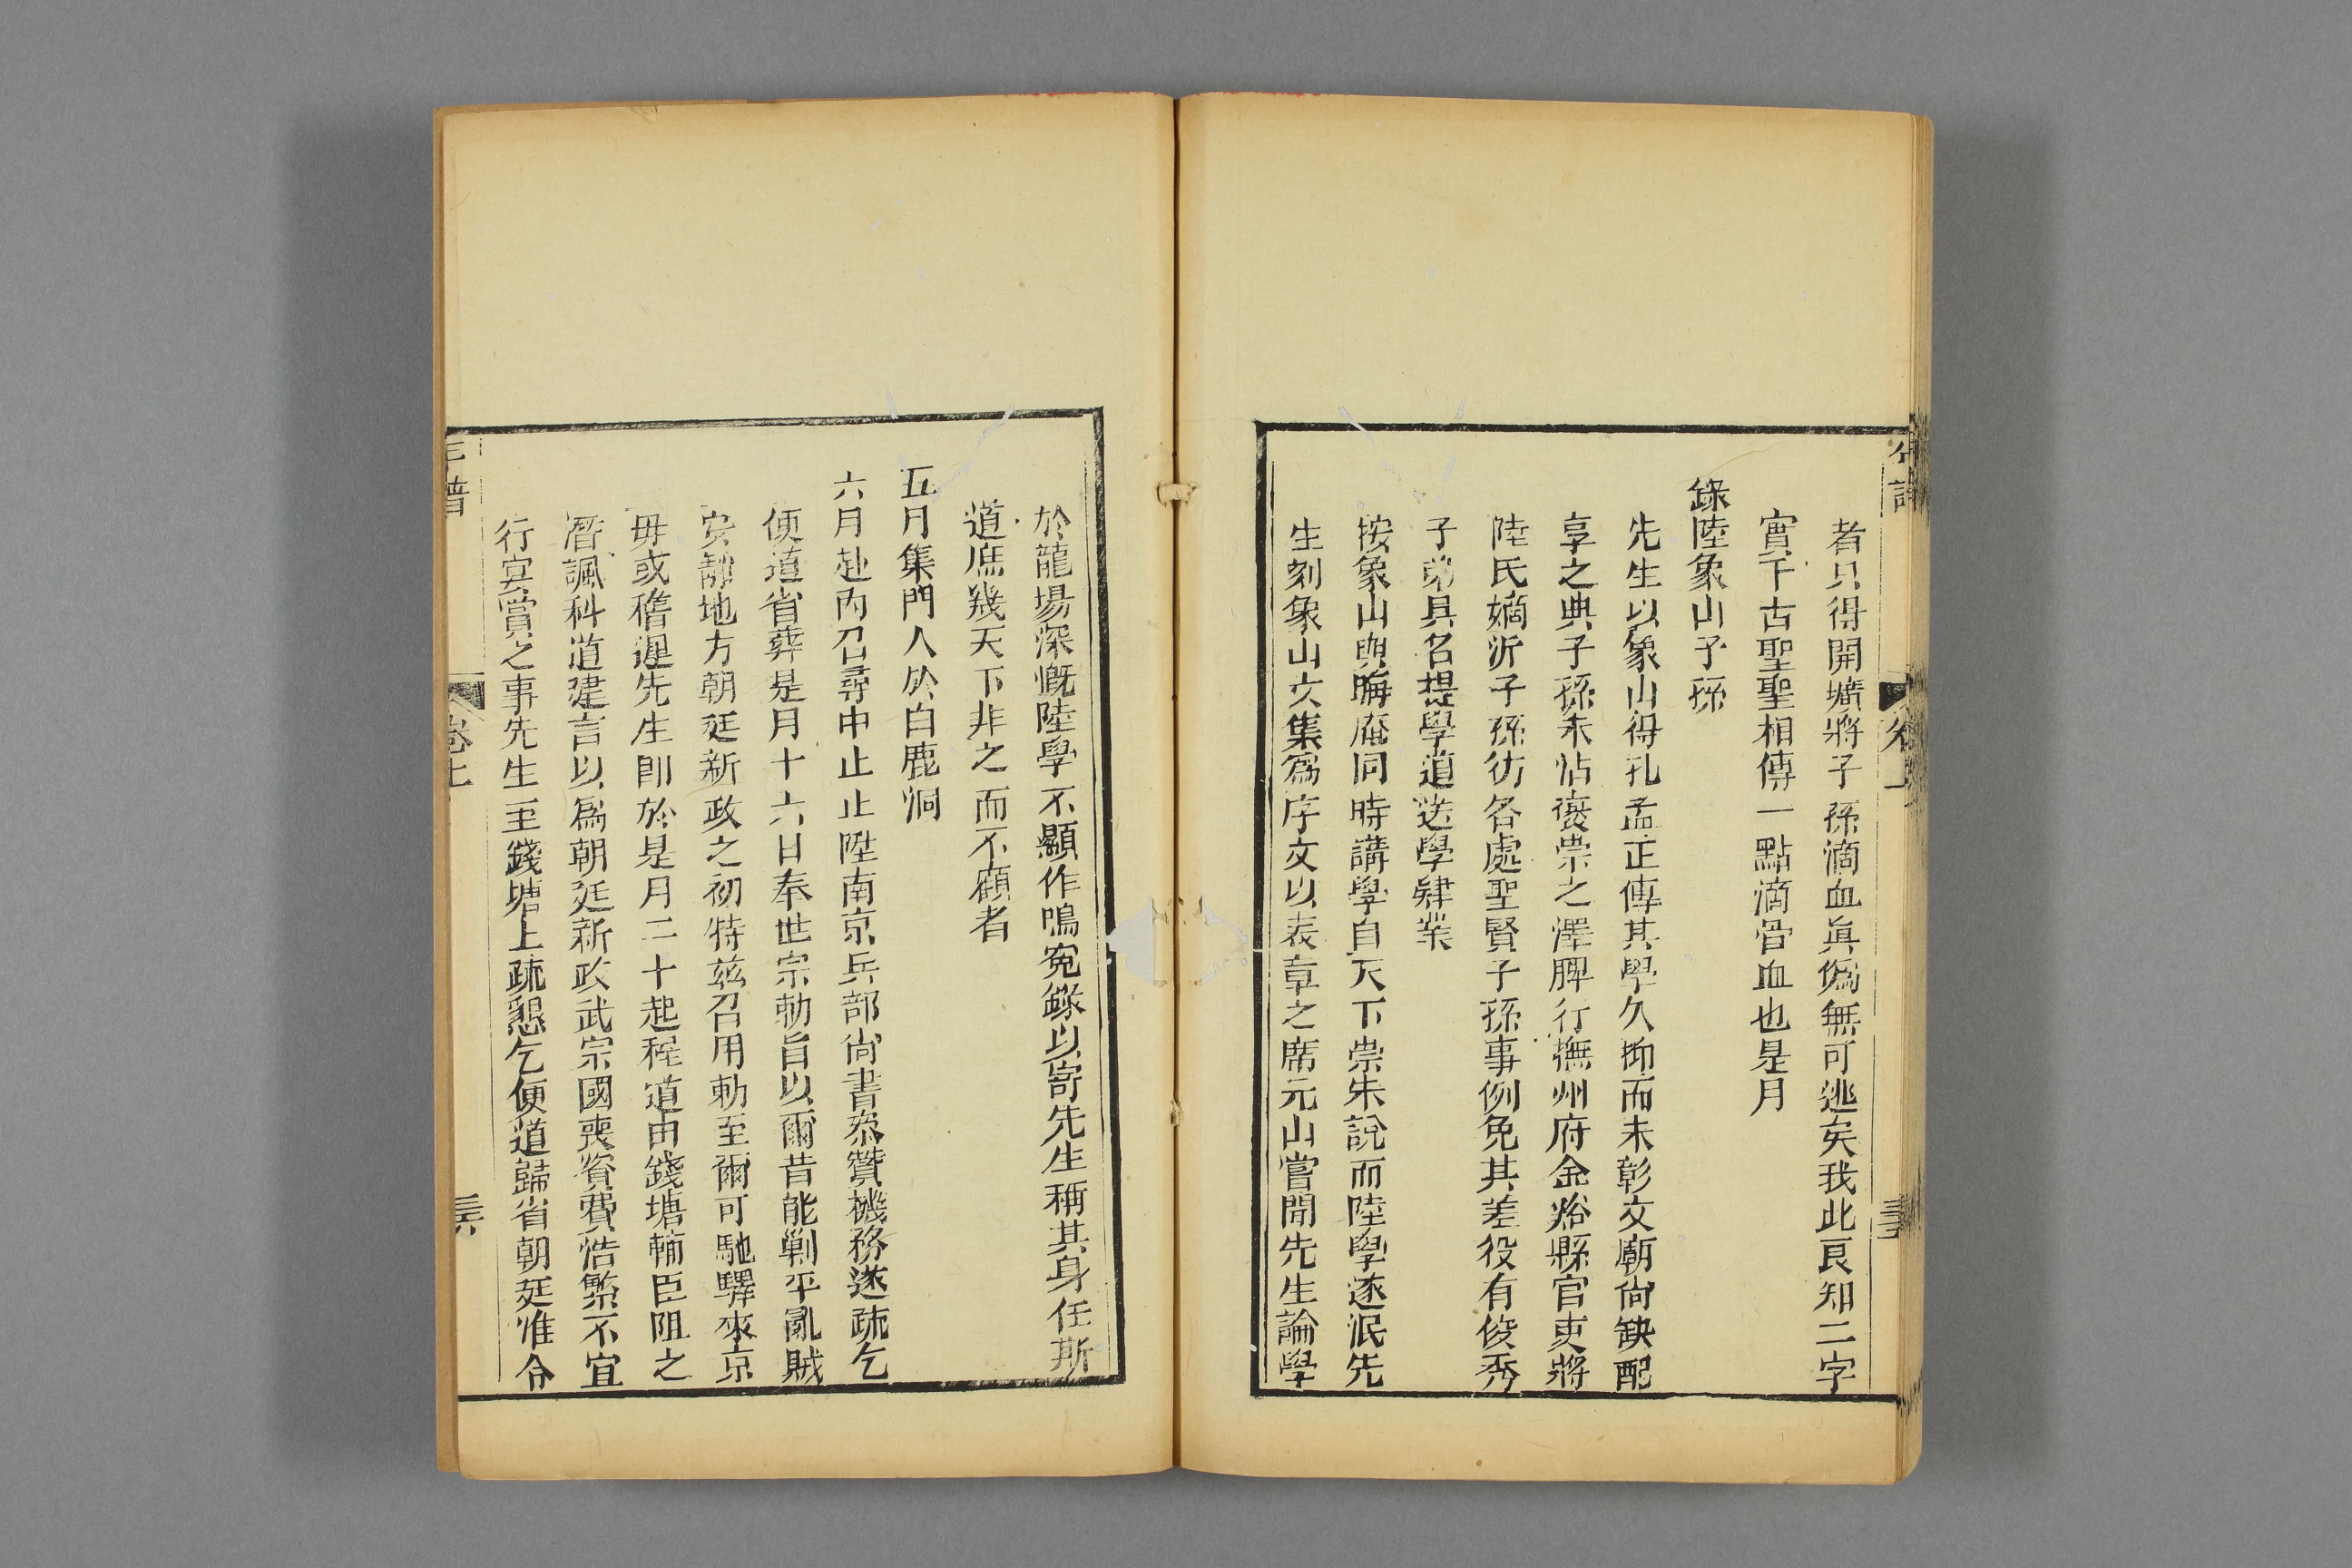 者只得開壙將子孫滴血真僞無可逃矣我此良知二字
實千古聖聖相傳一點滴骨血也是月
錄陸象山子孫
先生以象山得孔孟正傳其學久抑而未彰文廟尙缺配
享之典子孫未沾褒崇之澤牌行撫州府金谿縣官吏將
陸氏嫡派子孫彷各處聖賢子孫事例免其差役有俊秀
子弟具名提學道送學肄業
按象山與晦庵同時講學自天下崇朱說而陸學遂泯先
生刻象山文集爲序文以表章之席元山嘗聞先生論學
於龍場深慨陸學不顯作鳴寃錄以寄先生稱其身任斯
道庶幾天下非之而不顧者
五月集門人於白鹿洞
六月赴內召尋中止止陞南京兵部尙書叅贊機務遂疏乞
便道省葬是月十六日奉世宗勅旨以爾昔能剿平亂賊
安靜地方朝廷新政之初特玆召用勅至爾可馳驛來京
毋或稽遲先生卽於是月二十起程道由錢塘輔臣阻之
潛諷科道建言以爲朝廷新政武宗國喪資費浩繁不宜
行宴賞之事先生至錢塘上疏懇乞便道歸省朝廷准令
年譜
卷上